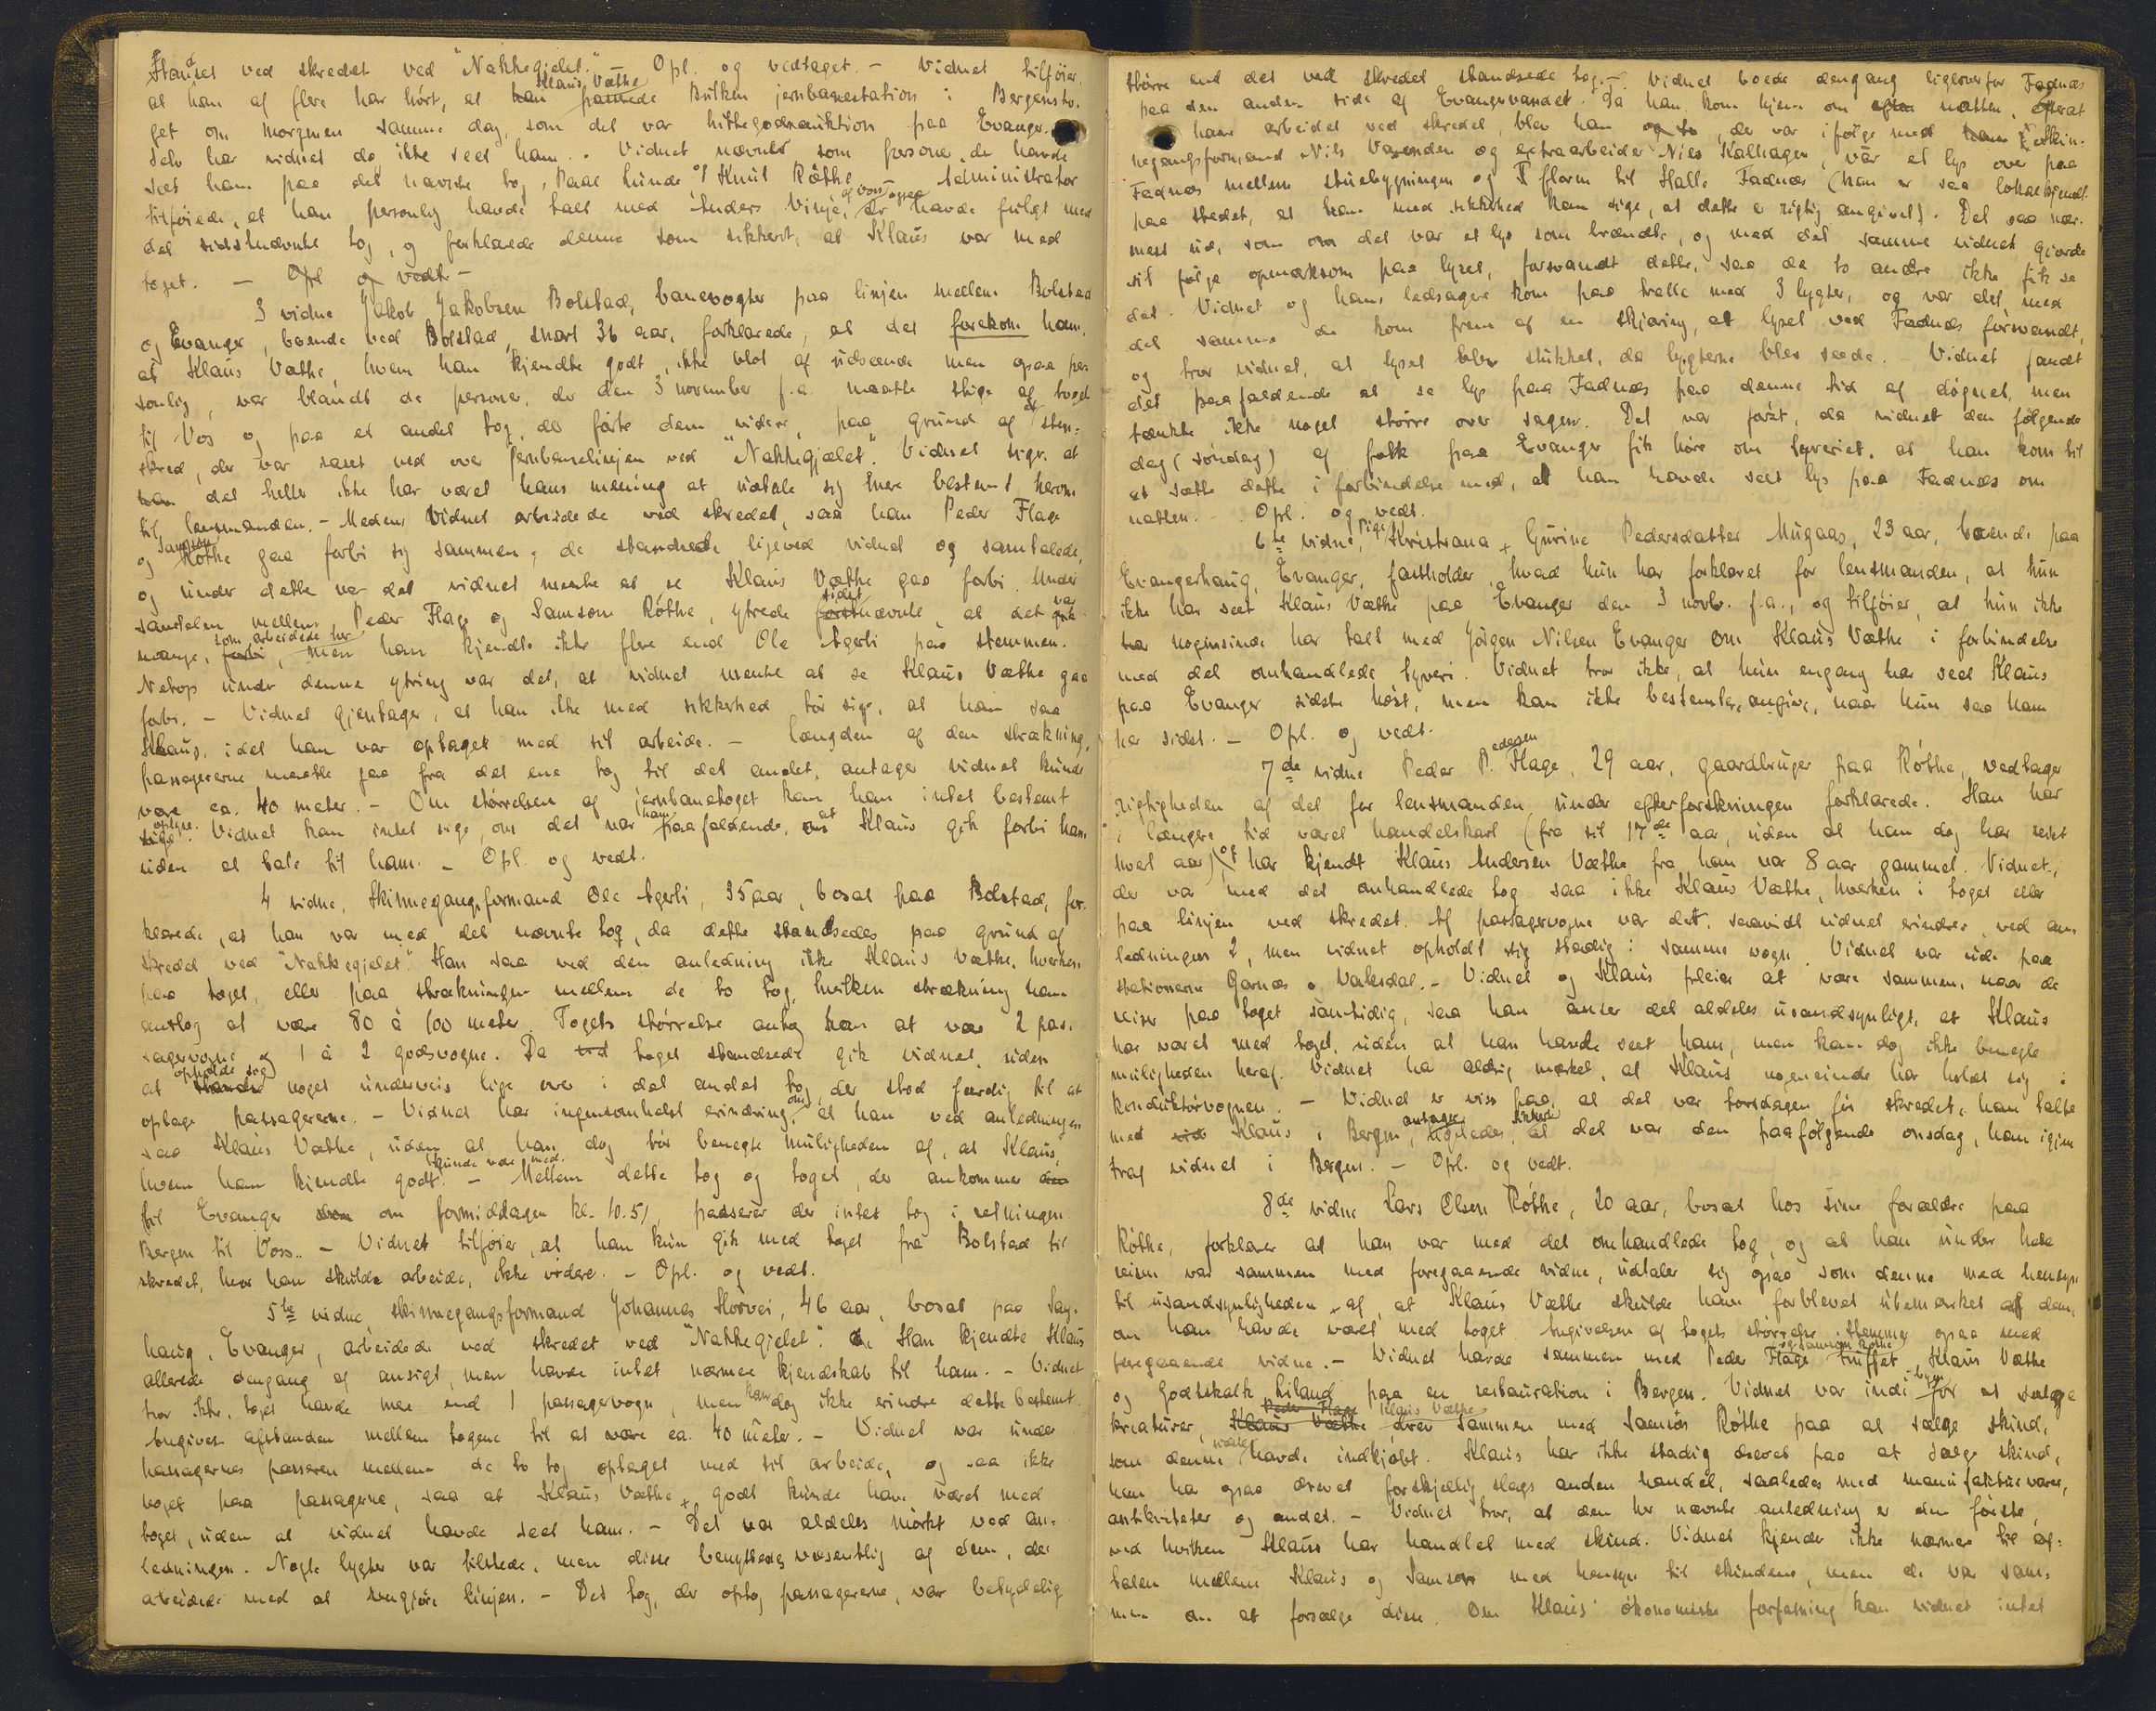 standset ved skredet ved "Nakkegjelet." Opl. og vedtaget - Vidnet tilføier,
at han af flere har hørt, at Klaus Væthe passerede Bulken jernbanestation i Bergensto-
get om morgenen samme dag, som det var hittegodsauktion paa Evanger.
Selv har vidnet da ikke seet ham. - Vidnet nævnte som personer, der havde
seet ham paa det nævnte tog, Paal Kinde og Knut Røthe Administrator
tilføiede, at han personlig havde talt med Anders Vinje, af Voss, der ogsaa havde fulgt med
det sidstnævnte tog, og forklarede denne som sikkert, at Klaus var med
toget. - Opl og vedt -
3 vidne Jakob Jakobsen Bolstad, banevogter paa linjen mellem Bolstad
og Evanger, boende ved Bolstad, snart 36 aar, forklarede, at det forekom ham,
at Klaus Væthe, hvem han kjendte godt, ikke blot af udseende men ogsaa per-
sonlig, var blandt de personer, der den 3 november f.a. maatte stige af toget
til Vos og paa et andet tog, der førte dem videre, paa grund af et sten-
skred, der var raset ned over jernbanelinjen ved "Nakkegjælet". Vidnet siger, at
han det heller ikke har været hans mening at udtale sig mere bestemt herom
til lensmanden. - Medens vidnet arbeidede ved skredet, saa han Peder Flage
og Samson Røthe gaa forbi sig sammen; de standsede ligeved vidnet og samtalede,
og under dette var det vidnet mente at se Klaus Væthe gaa forbi. Under
samtalen mellem Peder Flage og Samson Røthe, ytrede sidstnævnte, at det var
mange, som arbeidede her, men han kjendte ikke flere end Ole Agerli paa stemmen.
Netop under denne ytring var det, at vidnet mente at se Klaus Væthe gaa
forbi. - Vidnet gjentager, at han ikke med sikkerhed tør sige, at han saa
Klaus, idet han var optaget med sit arbeide. - Længden af den strækning,
passagererne maatte gaa fra det ene tog til det andet, antager vidnet kunde
være ca. 40 meter. - Om størrelsen af jernbanetoget kan han intet bestemt
oplyse. Vidnet kan intet sige, om det var ham paafaldende, at Klaus gik forbi ham
uden at tale til ham. - Opl. og vedt.
4 vidne, Skinnegangsformand Ole Agerli, 35 aar, bosat paa Bolstad, for-
klarede, at han var med det nævnte tog, da dette standsedes paa grund af
skredet ved "Nakkegjelet." Han saa ved den anledning ikke Klaus Væthe, hverken
paa toget, eller paa strækningen mellem de to tog, hvilken strækning han
antog at være 80 à 100 meter. Togets størrelse antog han at være 2 pas-
sagervogne og 1 à 2 godsvogne. Da toget standsede gik vidnet, uden
at opholde sig noget underveis lige over i det andet tog, der stod færdig til at
optage passagererne. - Vidnet har ingensomhelst erindring om, at han ved anledningen
saa Klaus Væthe, uden at han dog tør benegte muligheden af, at Klaus,
hvem han kjendte godt, kunde være med. - Mellem dette tog og toget, der ankommer
til Evanger om formiddagen kl. 10.51, passerer der intet tog i retningen
Bergen til Voss. - Vidnet tilføier, at han kun gik med toget fra Bolstad til
skredet, hvor han skulde arbeide, ikke videre. - Opl. og vedt.
5te vidne, skinnegangsformand Johannes Horvei, 46 aar, bosat paa
haug, Evanger, arbeidede ved skredet ved "Nakkegjelet". Han kjendte Klaus
allerede dengang af ansigt, men havde intet nærmere kjendskab til ham. - Vidnet
tror ikke, toget havde mer end 1 passagervogn, men kan dog ikke erindre dette bestemt.
Angiver afstanden mellem togene til at være ca. 40 meter. - Vidnet var under
passagerernes passeren mellem de to tog optaget med sit arbeide, og saa ikke
noget paa passagererne, saa at Klaus Væthe godt kunde have været med
toget, uden at vidnet havde seet ham. - Det var aldeles mørkt ved an-
ledningen. Nogle lygter var tilstede, men disse benyttedes væsentlig af dem, der
arbeidede med at rengjøre linjen. - Det tog, der optog passagererne, var betydelig
større end det ved skredet standsede tog. - Vidnet boede dengang ligeoverfor Fadnæs
paa den anden side af Evangervandet. Da han kom hjem om natten, efterat
have arbeidet ved skredet, blev han, der var i følge med skin-
negangsformand Nils Væenden og extraarbeider Nils Kalhagen, var et lys over paa
Fadnæs mellem stuebygningen og floren til Halle Fadnæs (han er saa lokalkjendt
paa stedet, at han med sikkerhed kan sige, at dette er rigtig angivet). Det saa nær-
mest ud, som om det var et lys som brændte, og med det samme vidnet gjorde
sit følge opmærksom paa lyset, forsvandt dette, saa de to andre ikke fik se
det. Vidnet og hans ledsagere kom paa tralle med 3 lygter, og var det med
det samme de kom frem af en skjæring, at lyset ved Fadnæs forsvandt,
og tror vidnet, at lyset blev slukket, da lygterne blev seede. Vidnet fandt
det paafaldende at se lys paa Fadnæs paa denne tid af døgnet, men
tænkte ikke noget større over sagen. Det var først, da vidnet den følgende
dag (søndag) af folk paa Evanger fik høre om tyveriet, at han kom til
at sætte dette i forbindelse med, at han havde seet lys paa Fadnæs om
natten. - Opl. og vedt.
6te vidne, pige Kristiana Gurine Pedersdatter Mugaas, 23 aar, boende paa
Evangerhaug, Evanger, fastholder, hvad hun har forklaret for lensmanden, at hun
ikke har seet Klaus Væthe paa Evanger den 3 novbr. f.a., og tilføier, at hun ikke
nogensinde har talt med Jørgen Nilsen Evanger om Klaus Væthe i forbindelse
med det omhandlede tyveri. Vidnet tror ikke, at hun engang har seet Klaus
paa Evanger sidste høst, men kan ikke bestemt angive, naar hun saa ham
her sidst. - Opl. og vedt.
7de vidne Peder Pedersen Flage, 29 aar, gaardbruger paa Røthe, vedtager
rigtigheden af det for lensmanden under efterforskningen forklarede. Han har
i længere tid været handelskarl (fra sit 17de aar, uden at han dog har reist
hvert aar), og har kjendt Klaus Andersen Væthe fra han var 8 aar gammel. Vidnet,
der var med det omhandlede tog saa ikke Klaus Væthe, hverken i toget eller
paa linjen ved skredet. Af passagervogne var det, saavidt vidnet erindrer, ved an-
ledningen 2, men vidnet opholdt sig stadig i samme vogn. Vidnet var ude paa
stationerne Garnæs og Vaksdal. - Vidnet og Klaus pleier at være sammen, naar de
reiser paa toget samtidig, saa han anser det aldeles usandsynligt, at Klaus
har været med toget, uden at han havde seet ham, men kan dog ikke benegte
muligheden heraf. Vidnet har aldrig mærket, at Klaus nogensinde har holdt sig i
konduktørvognen. - Vidnet er viss paa, at det var torsdagen før skredet, han talte
med Klaus i Bergen, antager sikkert at det var den paafølgende onsdag, han igjen
traf vidnet i Bergen. - Opl. og vedt.
8de vidne Lars Olsen Røthe, 20 aar, bosat hos sine forældre paa
Røthe, forklarer at han var med det omhandlede tog, og at han under hele
reisen var sammen med foregaaende vidne, udtaler sig ogsaa som denne med hensyn
til usandsynligheden af, at Klaus Væthe skulde have forblevet ubemærket af dem,
om han havde været med toget. Angivelsen af togets størrelse stemmer ogsaa med
foregaaende vidne. - Vidnet havde sammen med Peder Flage og Samson Røthe truffet Klaus Væthe
og Godtskalk Liland paa en restauration i Bergen. Vidnet var inde i byen for at sælge
kreaturer, Klaus Væthe drev sammen med Samson Røthe paa at sælge skind,
som denne sidste havde indkjøbt. Klaus har ikke stadig drevet paa at sælge skind,
han har ogsaa drevet forskjellig slags anden handel, saaledes med manufakturvarer,
antikviteter og andet. - Vidnet tror, at den her nævnte anledning er den første,
ved hvilken Klaus har handlet med skind. Vidnet kjender ikke nærmere til af-
talen mellem Klaus og Samson med hensyn til skindene, men de var sam-
men om at forsælge disse. Om Klaus' økonomiske forfatning kan vidnet intet